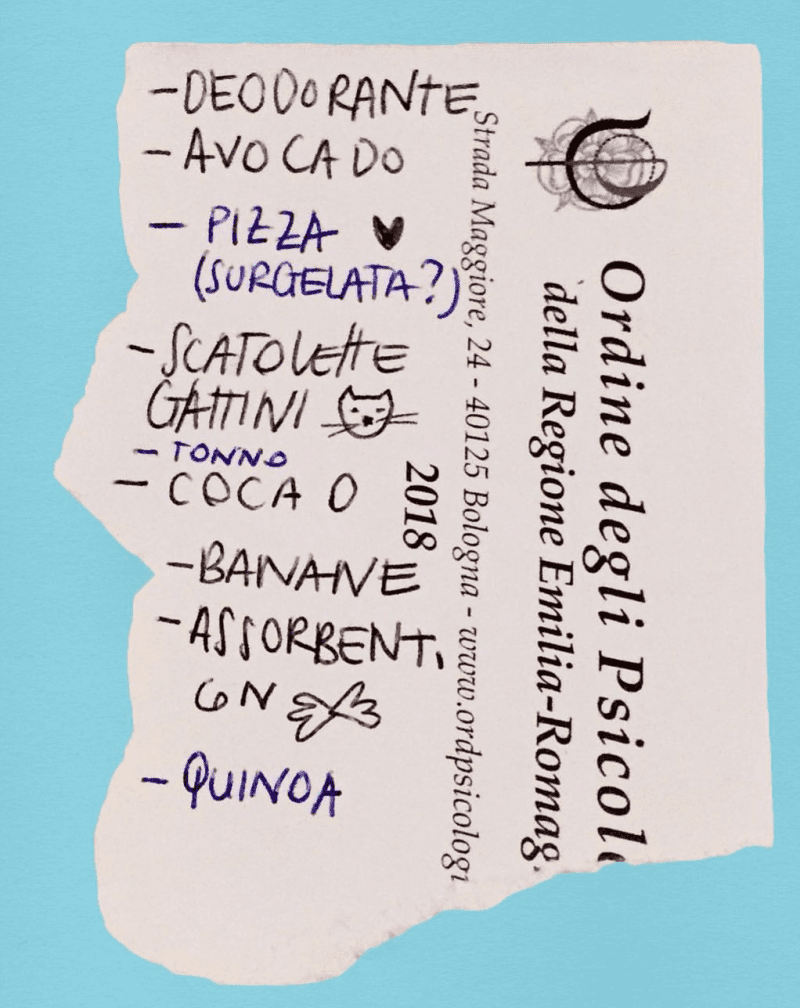 -DEODORANTE
-AVOCADO
- PIZZA
(SURGELATA?)
-SCATOLETTE
GATTINI
- TONNO
- COCAO
-BANANE
-ASSORBENTi
CON
- QUINOA
Ordine degli Psicol
della Regione Emilia-Romag
Strada Maggiore, 24 - 40125 Bologna - www.ordpsicologi
2018